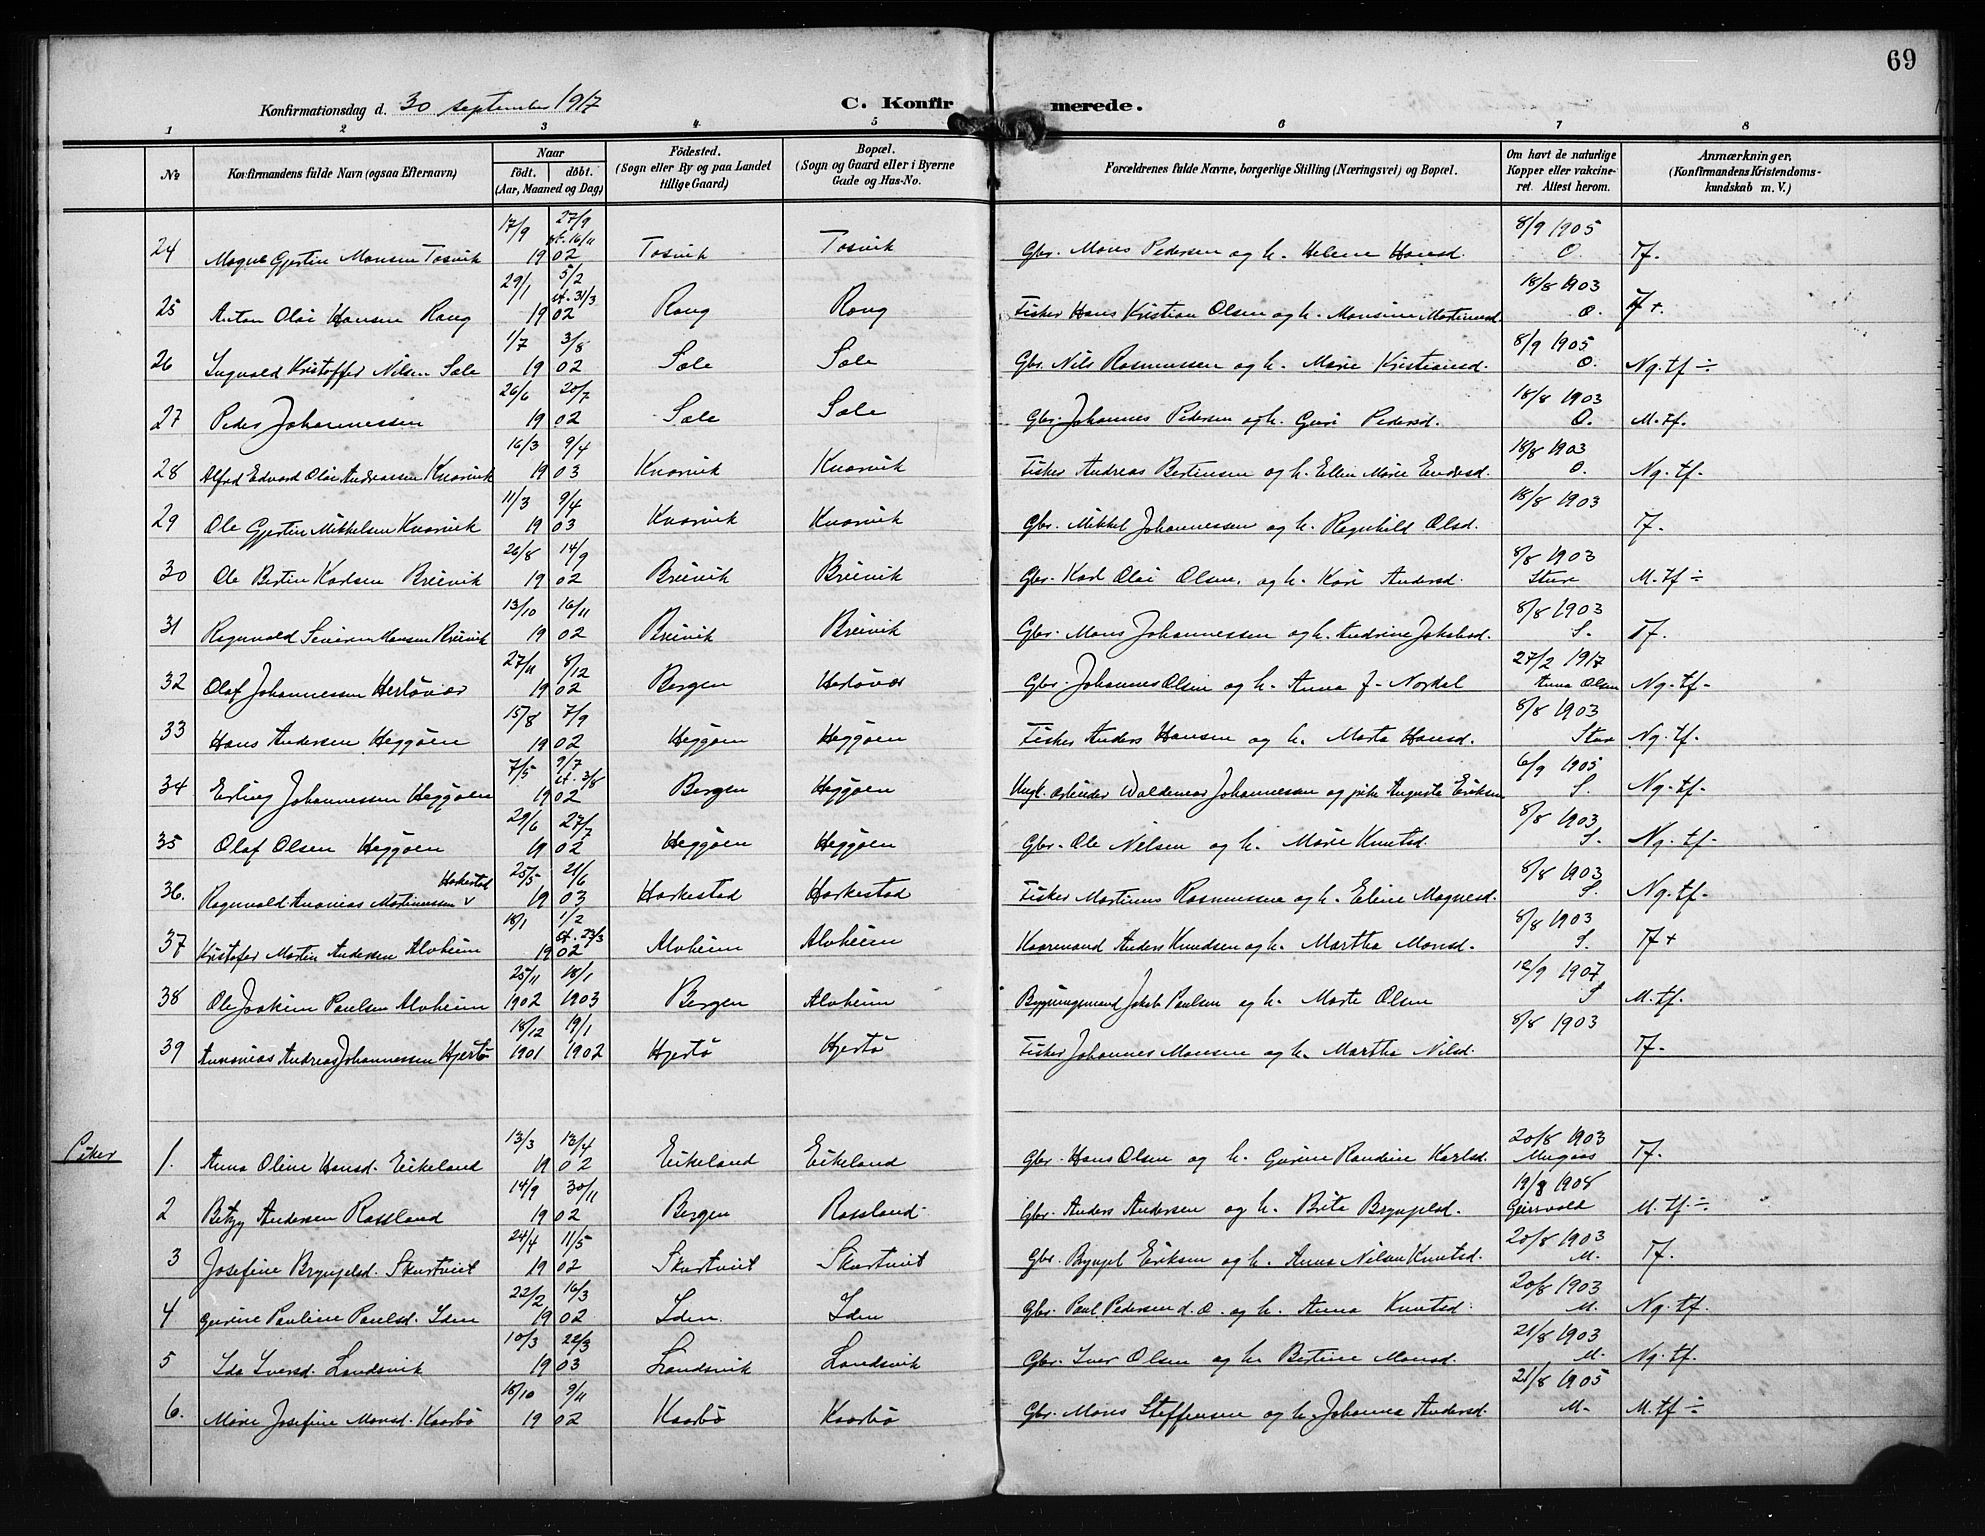 69
Konfirmationsdag d. 30 september 1917
C. Konfir merede.
1 2 3 4 5 6 7 8
No
Konfirmandens fulde Navn (ogsaa Efternavn)
Naar
født. døbt.
(Aar, Maaned og Dag)
Fødested.
(Sogn eller By og paa Landet
tillige Gaard)
Bopæl.
(Sogn og Gaard eller i Byerne
Gade og Hus-No.
Forældrenes fulde Navne, borgerlige Stilling (Næringsvei) og Bopæl.
Om havt de naturlige
Kopper eller vakcine-
ret. Attest herom.
Anmærkninger,
(Konfirmandens Kristendoms-
kundskab m. V.)
24 Magnus Gjertin Monsen Tosvik 17/9 27/9 st. 16/11 1902 Tosvik Tosvik Gbr. Mons Pedersen og h. Helene Hansd. 8/9 1905 O. Tf.
25 Anton Olai Hansen Rong 29/1 5/2 st. 31/3 1902 Rong Rong Fisker Hans Kristian Olsen og h. Monsine Martinusd. 18/8 1903 O. Tf +.
26 Ingvald Kristoffer Nilsen Sæle 1/7 3/8 1902 Sæle Sæle Gbr. Nils Rasmussen og h. Marie Kristiansd. 8/9 1905 O. Ng. tf ÷
27 Peder Johannessen 26/6 20/7 1902 Sæle Sæle Gbr. Johannes Pedersen og h. Guri Pedersd. 18/8 1903 O. M. tf.
28 Alfred Edvard Olai Andreassen Knarvik 16/3 9/4 1903 Knarvik Knarvik Fisker Andreas Bertinsen og h. Ellen Marie Endresd. 18/8 1903 O. Ng. tf.
29 Ole Gjertin Mikkelsen Knarvik 11/3 9/4 1903 Knarvik Knarvik Gbr. Mikkel Johannessen og h. Ragnhild Olsd. 18/8 1903 Tf.
30 Ole Bertin Karlsen Breivik 26/8 14/9 1902 Breivik Breivik Gbr. Karl Olai Olsen. og h. Kari Andersd. 8/8 1903 Sture M. tf ÷
31 Ragnvald Severin Monsen Breivik 13/10 16/11 1902 Breivik Breivik Gbr. Mons Johannessen og h. Andrine Jakobsd. 8/8 1903 S. Tf.
32 Olaf Johannessen Hertøvær 27/11 8/12 1902 Bergen Hertøvær Gbr. Johannes Olsen og h. Anna J. Nordal 27/2 1917 Anna Olsen Ng. tf.
33 Hans Andersen Heggøen 15/8 7/9 1902 Heggøen Heggøen Fisker Anders Hansen og h. Marta Hansd. 8/8 1903 Stur Ng. tf.
34 Erling Johannessen Heggøen 7/5 9/7 st. 3/8 1902 Bergen Heggøen Ungk. arbeider Waldemar Johannessen og pike Augusta Eriksen 6/9 1905 S. Ng. tf.
35 Olaf Olsen Heggøen 29/6 27/7 1902 Heggøen Heggøen Gbr. Ole Nilsen og h. Marie Knutsd. 8/8 1903 S. Ng. tf.
36. Ragnvald Ananias Martinussen Harkestad 25/5 21/6 1903 Harkestad Harkestad Fisker Martinus Rasmussen og h. Eline Magnesd. 8/8 1903 S. Ng. tf.
37 Kristofer Martin Andersen Alvheim 18/1 1/2 st. 23/3 1902 Alvheim Alvheim Kaarmand Anders Knudsen og h. Martha Monsd. 8/8 1903 S. Tf +
38 Ole Joakim Paulsen Alvheim 25/11 1902 18/1 1903 Bergen Alvheim Bygningsmand Jakob Paulsen og h. Marte Olsen 12/9 1907 S M. tf.
39 Annanias Andreas Johannessen Hjertø 18/12 1901 19/1 1902 Hjertø Hjertø Fisker Johannes Monsen og h. Martha Nilsd. 8/8 1903 Tf.
Piker
1. Anna Oline Hansd. Eikeland 13/3 13/4 1902 Eikeland Eikeland Gbr. Hans Olsen og h. Gurine Randine Karlsd. 20/8 1903 Mugaas Tf.
2 Betzy Andersen Rossland 14/9 30/11 1902 Bergen Rossland Gbr. Anders Andersen og h. Brita Brynjelsd. 19/8 1908 Geirvold M. tf. ÷
3 Josefine Brynjelsd. Skurtveit 24/4 11/5 1902 Skurtveit Skurtveit Gbr. Brynjel Eriksen og h. Anna Nilsen Knutsd. 20/8 1903 M. Tf.
4 Gurine Pauline Paulsd. Iden 22/2 16/3 1902 Iden. Iden Gbr. Paul Pedersen d. o. og h. Anna Knutsd. 20/8 1903 M. Ng. tf.
5 Ida Iversd. Landsvik 10/3 22/3 1903 Landsvik Landsvik Gbr. Iver Olsen og h. Bertine Monsd. 21/8 1903 M. Ng. tf.
6. Marie Josefine Monsd. Kaarbø 18/10 9/11 1902 Kaarbø Kaarbø Gbr. Mons Steffensen og h. Johanna Andersd. 21/8 1905 M. M. tf ÷